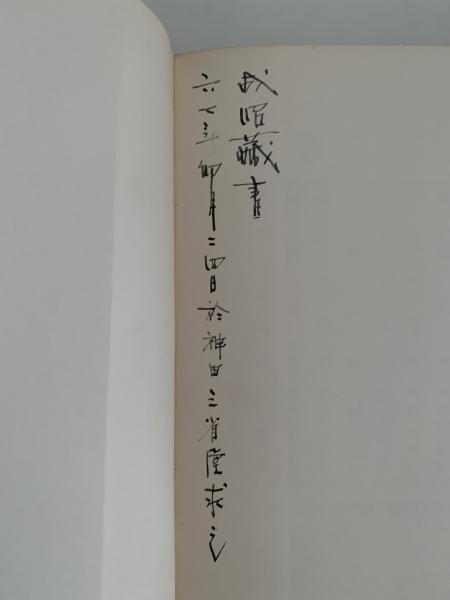 昭藏書
六七年卯月二四日於神田三省堂求之